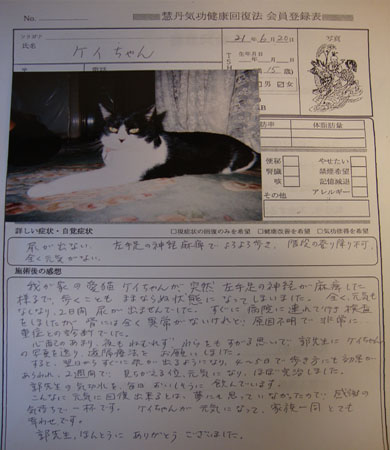 No.
慧丹気功健康回復法 会員登録表
氏名
ケイちゃん
21年6月20日
写真
15歳)
体脂肪量
便秘
やせたい
腎臓
禁煙希望
咳
記憶減退
アレルギー
その他
詳しい症状・自覚症状
□現症状の回復のみを希望 □健康改善を希望 □気功技得を希望
尿が出ない。 左手足の神経麻痺でよろよろ歩き、階段の登り降り不可。
全く元気がない。
施術後の感想
我が家の愛猫ケイちゃんが突然左手足の神経が麻痺した
様子で、歩くこともままならぬ状態になってしまいました。全く元気も
なくなり、2日間尿が出ませんでした。すぐに病院に連れて行き検査
をしましたが、腎には全く異常がないけれど、原因不明で非常に
重症との診断でした。
心配のあまり、夜もねむれず、わらをもすがる思いで、郭先生にケイちゃん
の写真を送り、遠隔療法をお願いしました。
すると、翌日からすぐに尿が出るようになり、4〜5日で歩き方にも効果が
あらわれ、2週間で見ちがえる位元気になり、ほぼ完治しました。
郭先生の気功水を毎日おいしそうに飲んでいます。
こんなに元気に回復出来るとは、夢にも思っていなかったので、感謝の
気持ちで一杯です。ケイちゃんが元気になって、家族一同とても
幸わせです。
郭先生、ほんとうにありがとうございました。